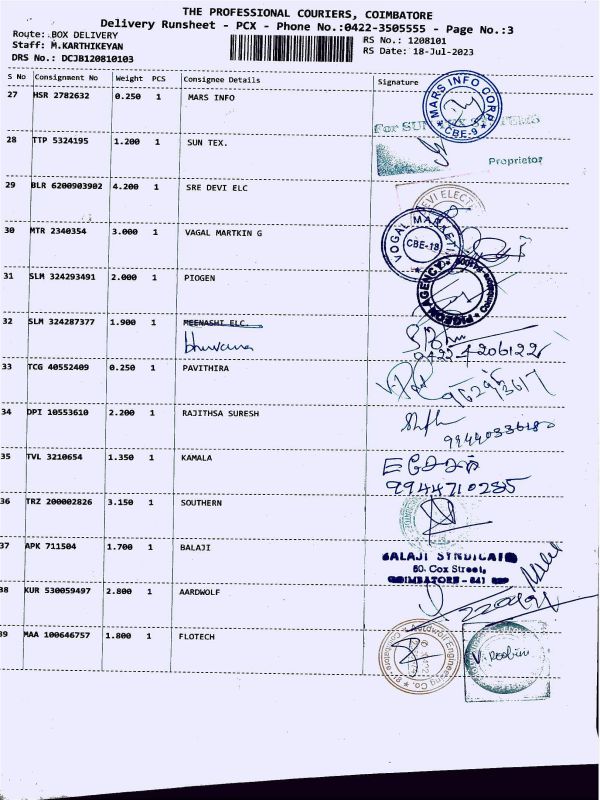 THE PROFESSIONAL COURIERS, COIMBATORE
Delivery Runsheet - PCX - Phone No.:0422-3505555 - Page No.:3
Route: BOX DELIVERY
RS No.: 1208101
Staff: M.KARTHIKEYAN
RS Date: 18-Jul-2023
DRS No.: DCJB120810103
S No Consignment No Weight PCS Consignee Details Signature
27 HSR 2782632 0.250 1 MARS INFO
MARS INFO CORP
CBE-9
28 TTP 5324195 1.200 1 SUN TEX.
For SUN
Proprietor
29 BLR 6200903902 4.200 1 SRE DEVI ELC
DEVI ELECT
30 MTR 2340354 3.000 1 VAGAL MARTKIN G
VOGAL MARKETI
CBE-18
31 SLM 324293491 2.000 1 PIOGEN
PIGEON AGENCY
32 SLM 324287377 1.900 1 MEENASHI ELC.
bhuvana
0422-4206122
33 TCG 40552409 0.250 1 PAVITHIRA
34 DPI 10553610 2.200 1 RAJITHSA SURESH
35 TVL 3210654 1.350 1 KAMALA
9944710285
36 TRZ 200002826 3.150 1 SOUTHERN
37 APK 711504 1.700 1 BALAJI
BALAJI SYNDICATE
60. Cox Street,
COIMBATORE - 641
38 KUR 530059497 2.800 1 AARDWOLF
39 MAA 100646757 1.800 1 FLOTECH
Engineering Co.
Coimbatore